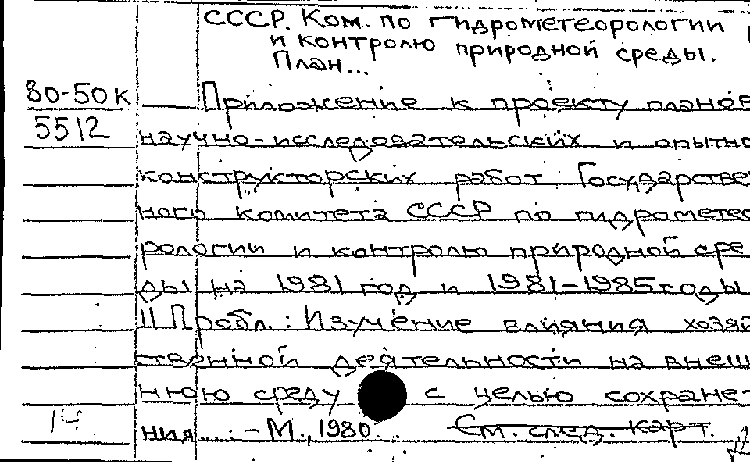 СССР. Ком. по гидрометеорологии
и контролю природной среды.
План...
80-50к
5512
Приложение к проекту планов
научно-исследовательских и опытно
конструкторских работ Государстве
ного комитета СССР по гидрометео
рологии и контролю природной сре
ды на 1981 год и 1981-1985 годы
II Пробл.: Изучение влияния хозяй
ственной деятельности на внеш
нюю среду с целью сохране-
ния... - М., 1980.
См. след. карт.
14